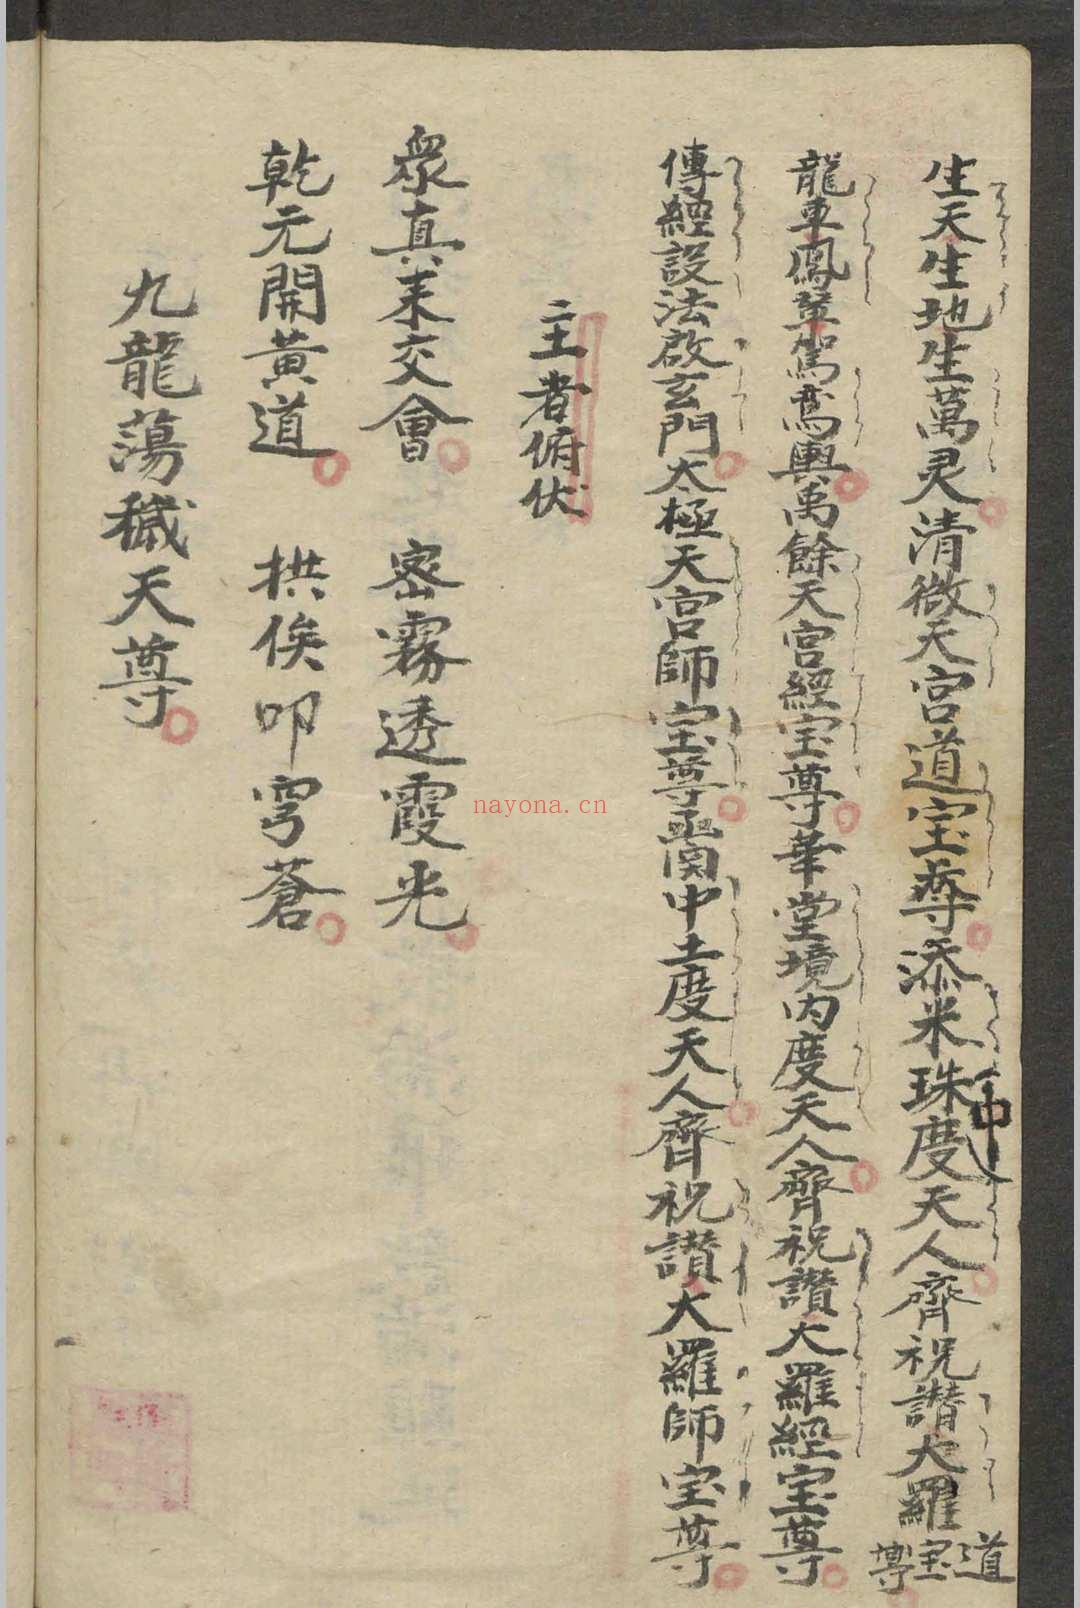 生天生地生萬灵清微天宫道宝尊添米珠中度天人齊祝讃大羅道宝尊
龍車鳳輦駕鸞輿禹餘天宫經宝尊華堂境内度天人齊祝讃大羅經宝尊
傳經設法啟玄門太極天宫師宝尊中土度天人齊祝讃大羅師宝尊
二主者俯伏
衆真来交會 密霧透霞光
乾元開黄道 拱俟叩穹蒼
九龍蕩穢天尊
nayona.cn